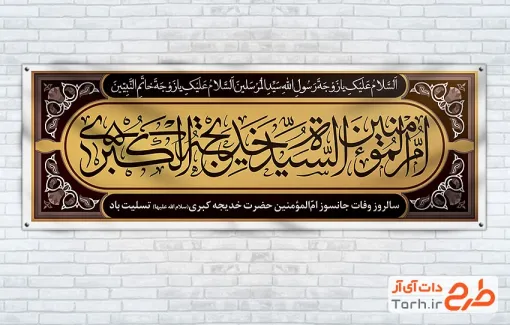 اَلسَّلامُ عَلَیْكِ یا زَوْجَةَ رَسُولِ اللهِ سَیِّدِ الْمُرْسَلینَ اَلسَّلامُ عَلَیْكِ یا زَوْجَةَ خاتَمِ النَّبِیّینَ
اُمُّ المُؤمِنینَ السَّیِّدَة خَدیجَةُ الکُبری
سالروز وفات جانسوز امّ‌المؤمنین حضرت خدیجه کبری (سلام الله علیها) تسلیت باد
طرح دات آی‌آر
Tarh.ir